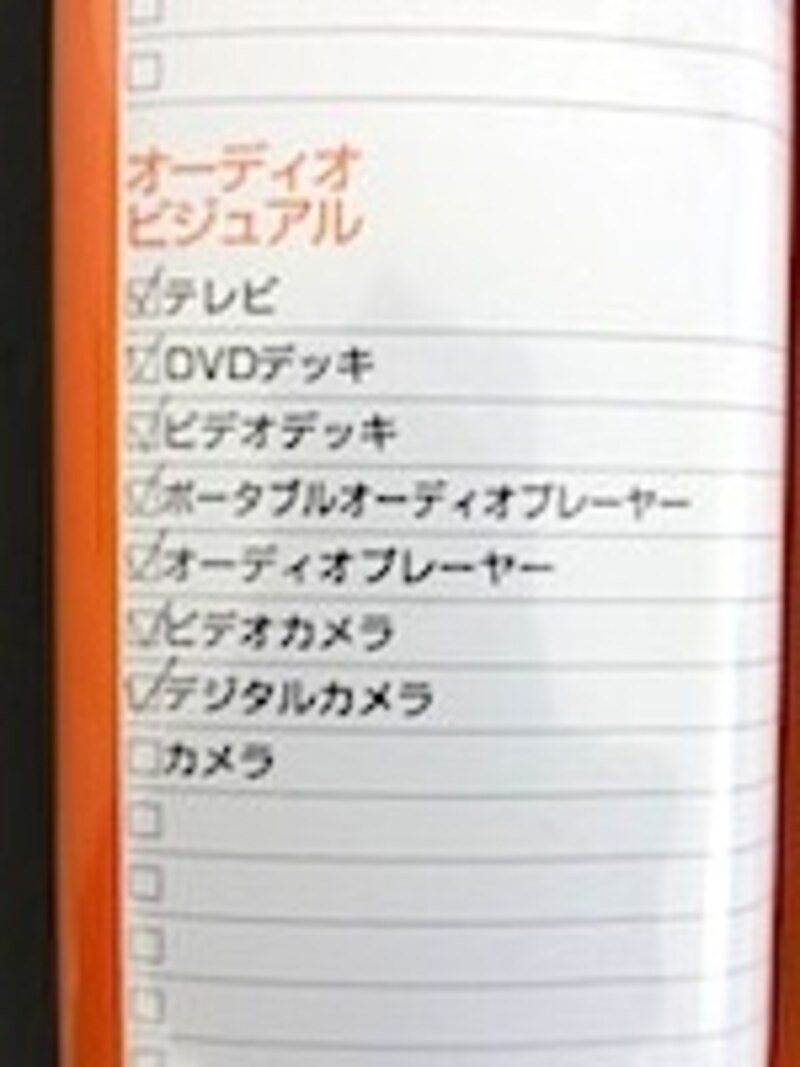 オーディオ
ビジュアル
テレビ
DVDデッキ
ビデオデッキ
ポータブルオーディオプレーヤー
オーディオプレーヤー
ビデオカメラ
デジタルカメラ
カメラ